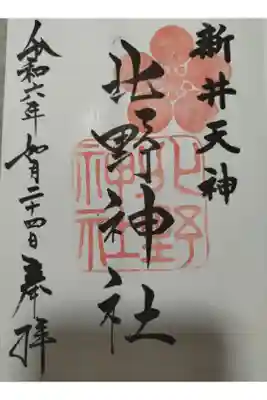 新井天神
北野神社
北野
神社
令和六年 如月二十四日 奉拝